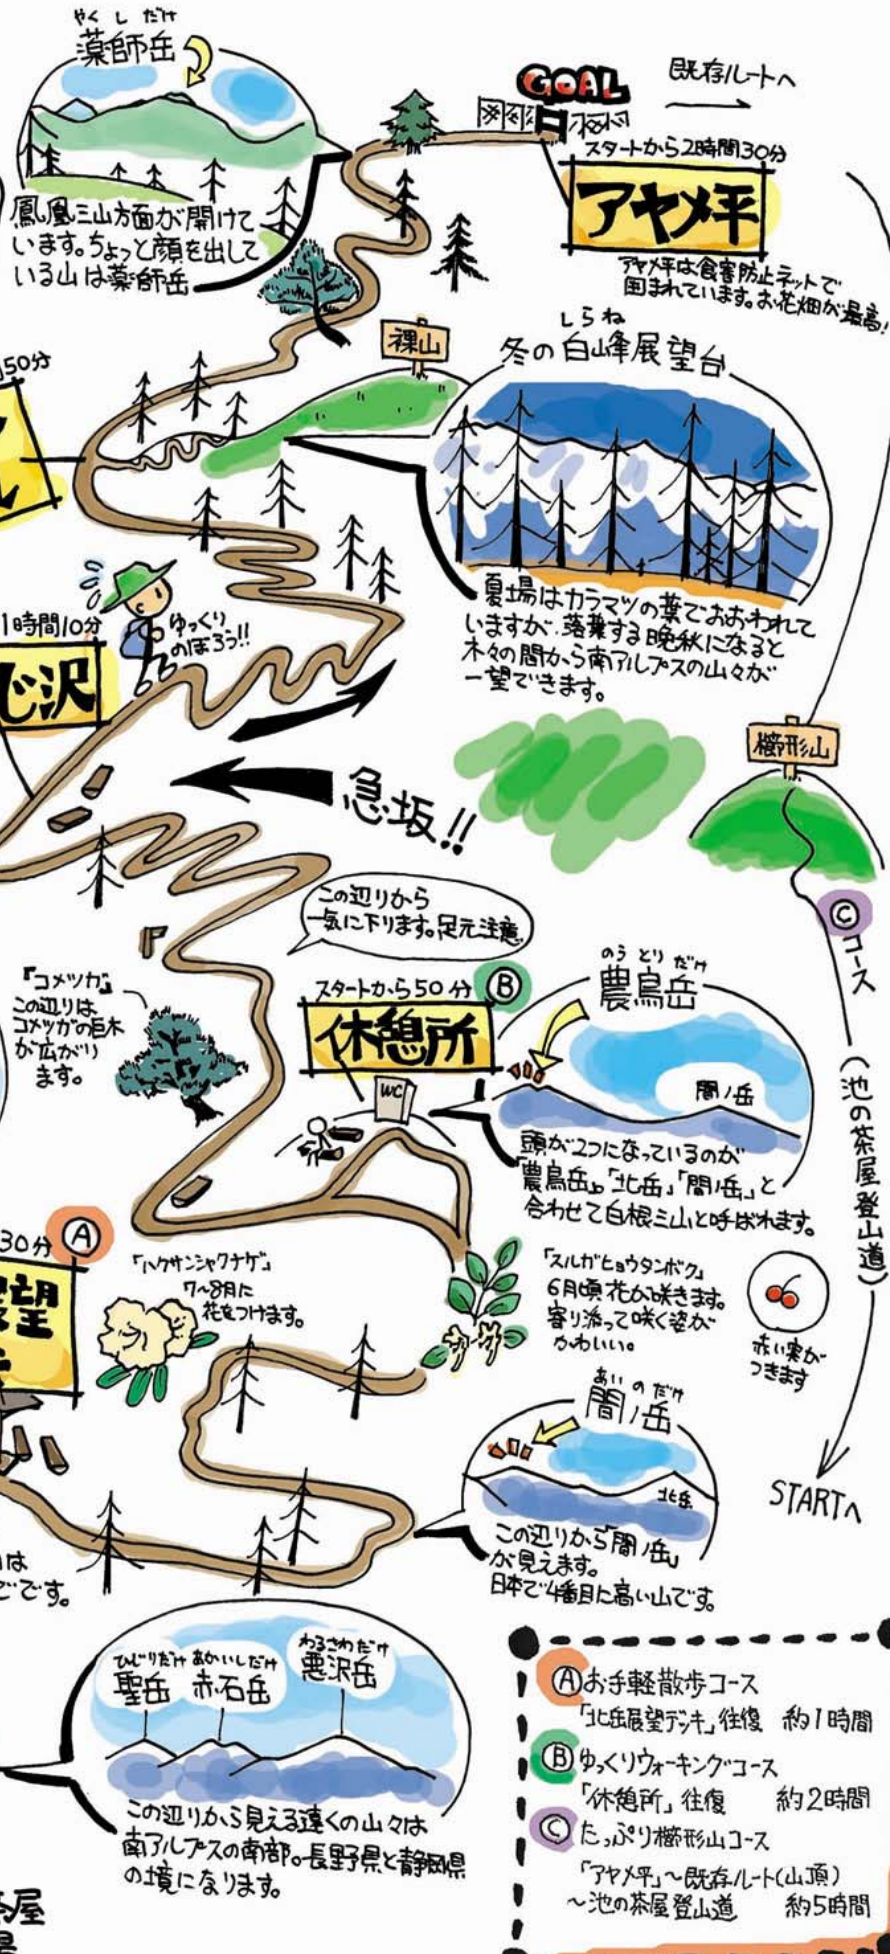 やくしだけ
薬師岳
GOAL
既存ルートへ
スタートから2時間30分
アヤメ平
アヤメ平は食害防止ネットで
囲まれています。お花畑が最高!
鳳凰三山方面が開けて
います。ちょっと顔を出して
いる山は薬師岳
裸山
しらね
冬の白峰展望台
50分
夏場はカラマツの葉でおおわれて
いますが、落葉する晩秋になると
木々の間から南アルプスの山々が
一望できます。
1時間10分
じ沢
ゆっくり
のぼろう!!
櫛形山
急坂!!
この辺りから
一気に下ります。足元注意
Ⓒコース
(池の茶屋登山道)
STARTへ
『コメツガ』
この辺りは
コメツガの巨木
が広がり
ます。
スタートから50分 Ⓑ
休憩所
WC
のうとりだけ
農鳥岳
間ノ岳
頭が2つになっているのが
「農鳥岳」。「北岳」「間ノ岳」と
合わせて白根三山と呼ばれます。
30分 Ⓐ
望
「ハクサンシャクナゲ」
7~8月に
花をつけます。
「スルガヒョウタンボク」
6月頃花が咲きます。
寄り添って咲く姿が
かわいい。
赤い実が
つきます
あいのだけ
間ノ岳
北岳
この辺りから「間ノ岳」
が見えます。
日本で4番目に高い山です。
は
です。
ひじりだけ あかいしだけ わるさわだけ
聖岳 赤石岳 悪沢岳
この辺りから見える遠くの山々は
南アルプスの南部。長野県と静岡県
の境になります。
茶屋
場
Ⓐお手軽散歩コース
「北岳展望デッキ」往復 約1時間
Ⓑゆっくりウォーキングコース
「休憩所」往復 約2時間
Ⓒたっぷり櫛形山コース
「アヤメ平」~既存ルート(山頂)
~池の茶屋登山道 約5時間